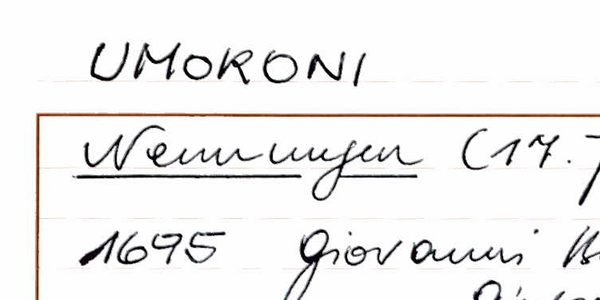 UMORONI
Nennungen (17.
1695 Giovanni